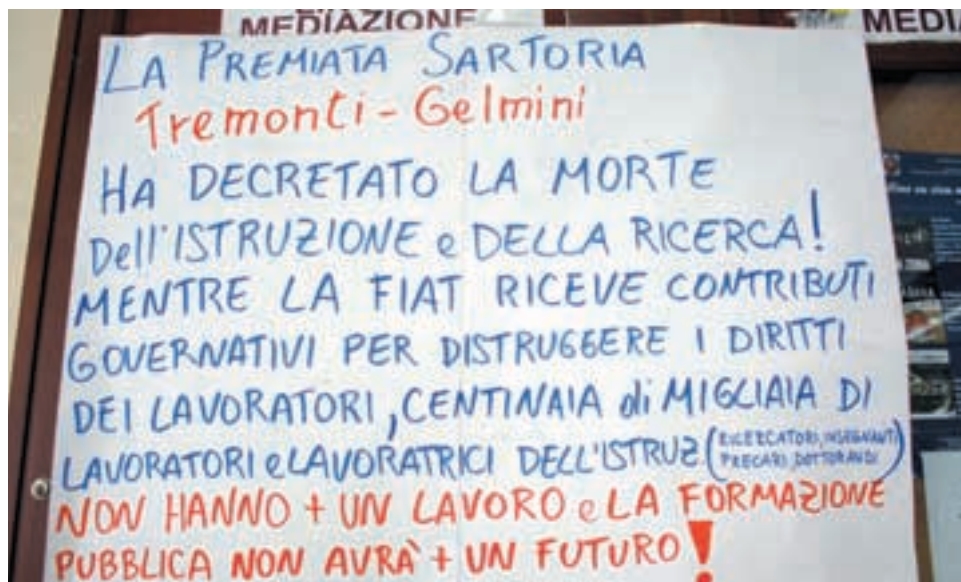 MEDIAZIONE
MEDI
LA PREMIATA SARTORIA
Tremonti - Gelmini
HA DECRETATO LA MORTE
Dell'ISTRUZIONE e DELLA RICERCA!
MENTRE LA FIAT RICEVE CONTRIBUTI
GOVERNATIVI PER DISTRUGGERE I DIRITTI
DEI LAVORATORI, CENTINAIA di MIGLIAIA DI
LAVORATORI e LAVORATRICI DELL'ISTRUZ. (RICERCATORI, INSEGNANTI
PRECARI, DOTTORANDI)
NON HANNO + UN LAVORO e LA FORMAZIONE
PUBBLICA NON AVRÀ + UN FUTURO!